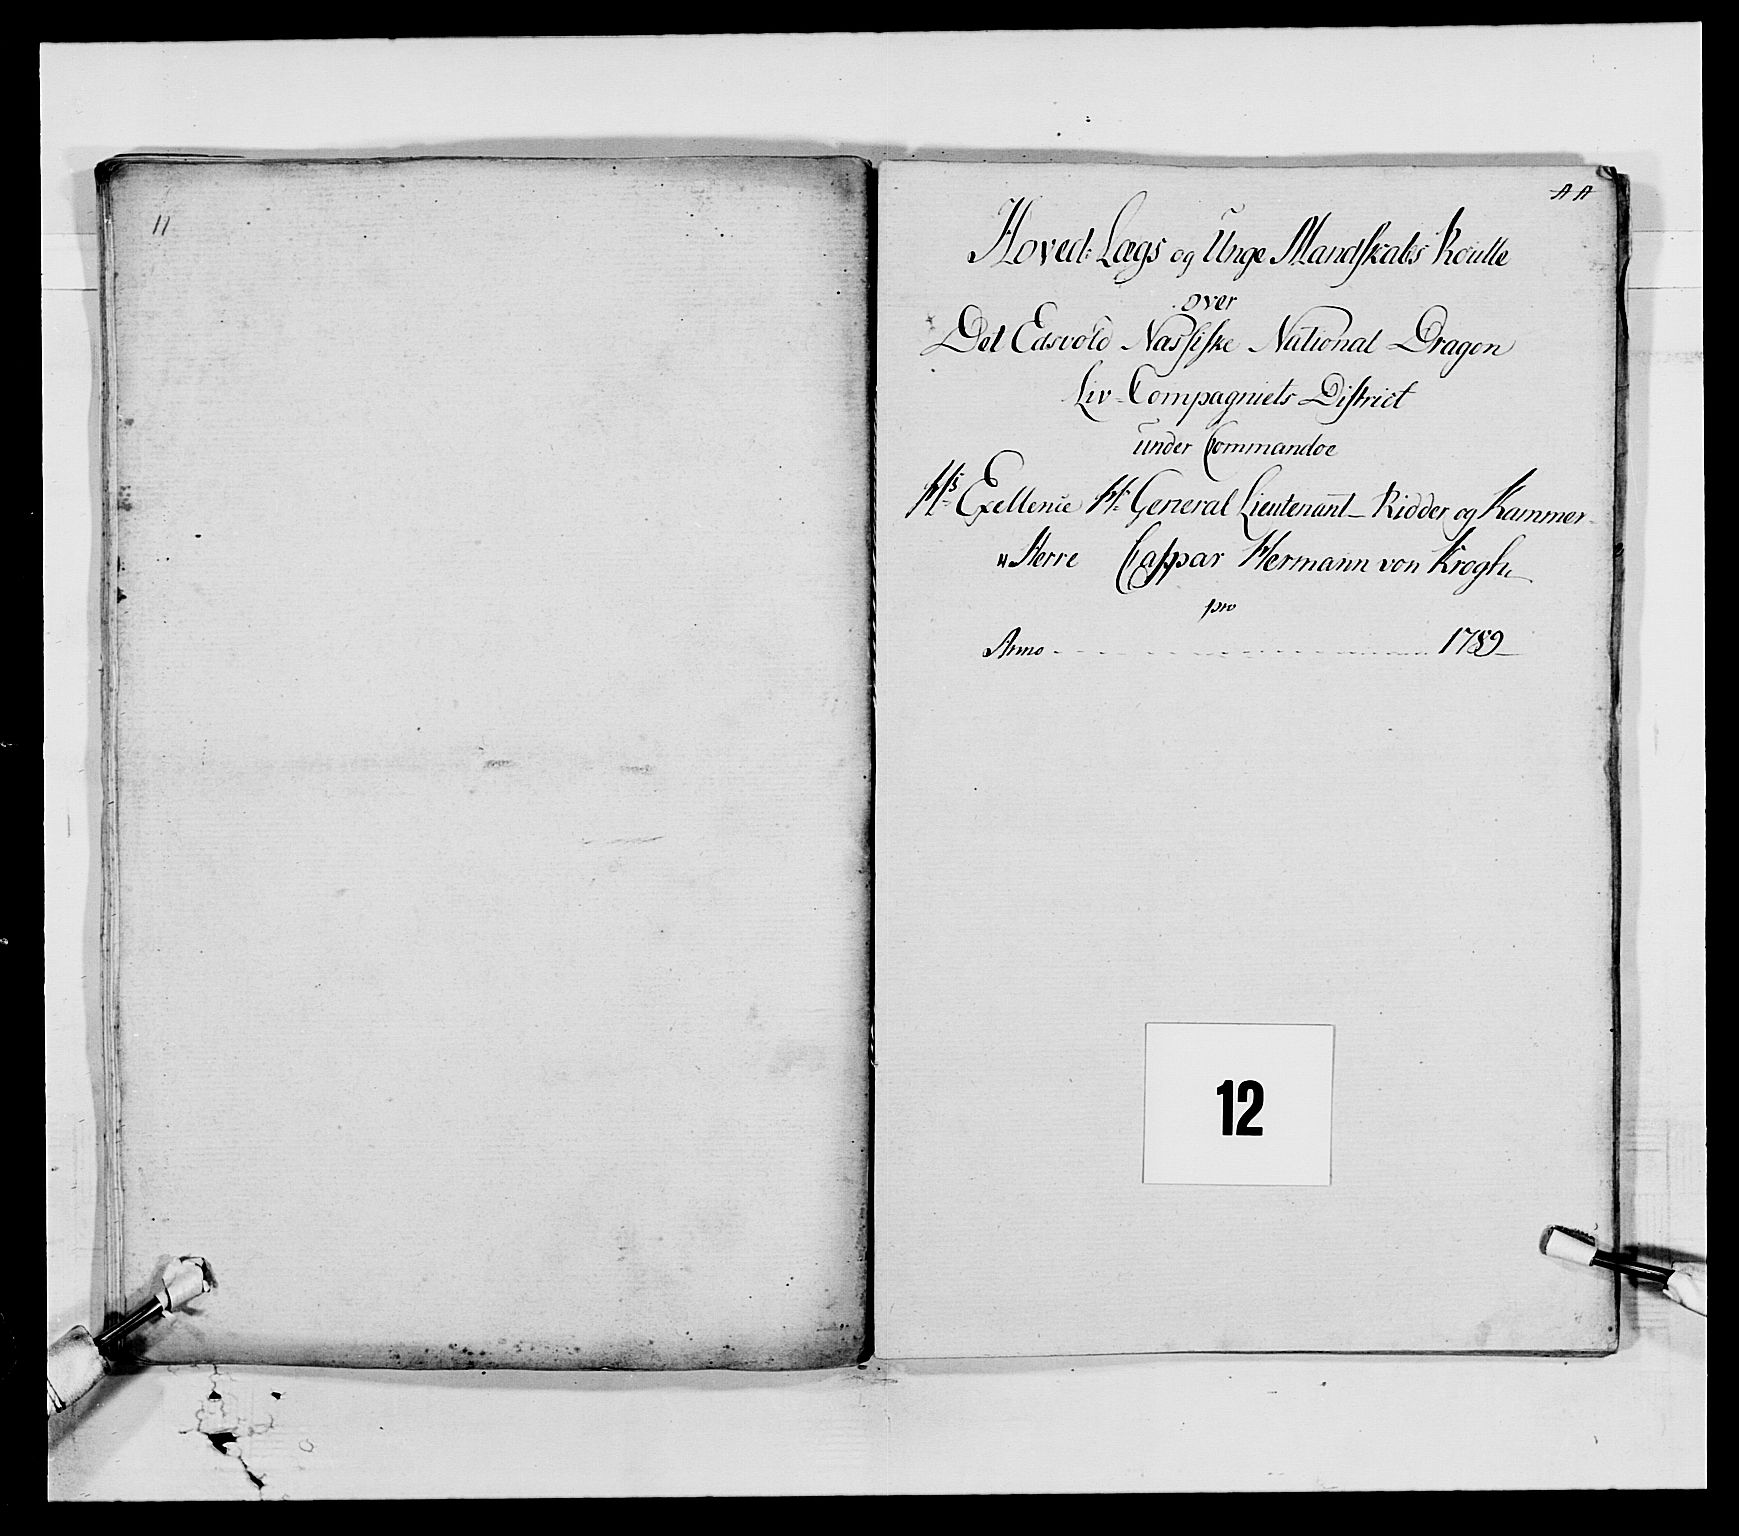 11
Hoved: Lægs og Unge Mandskabs Roulle
over
Det Edsvold Nassiske National Dragon
Liv-Compagniets District
under Commandoe
Hs Exellence Hr General Lieutenant Ridder og Kammer
Herre Caspar Hermann von Krogh
pro
Anno 1789
12